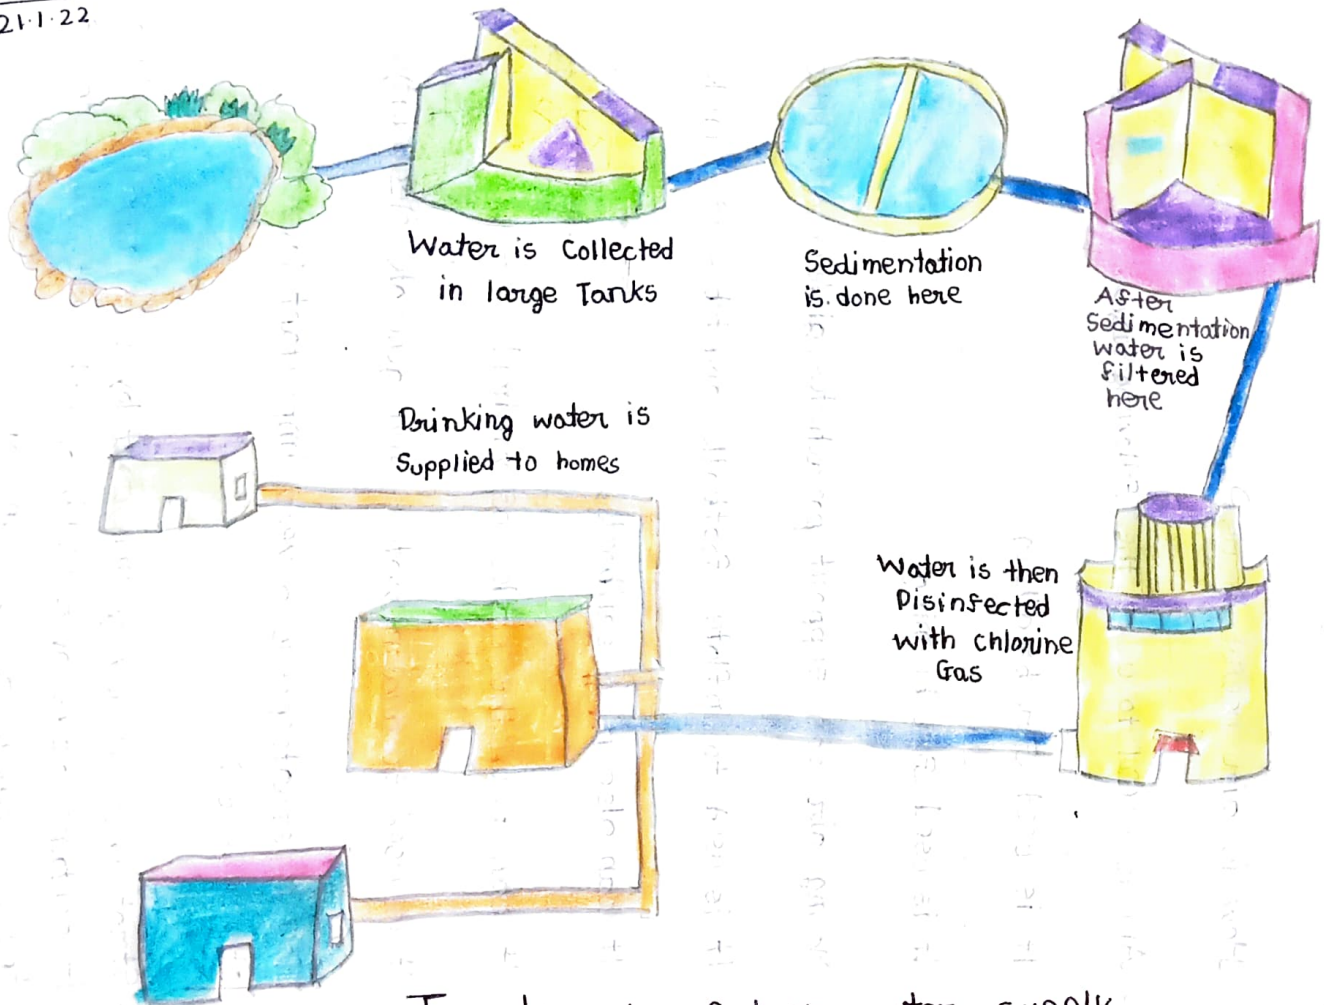 21.1.22
Water is Collected
in large Tanks
Sedimentation
is. done here
After
Sedimentation
water is
filtered
here
Drinking water is
Supplied to homes
Water is then
Disinfected
with chlorine
Gas